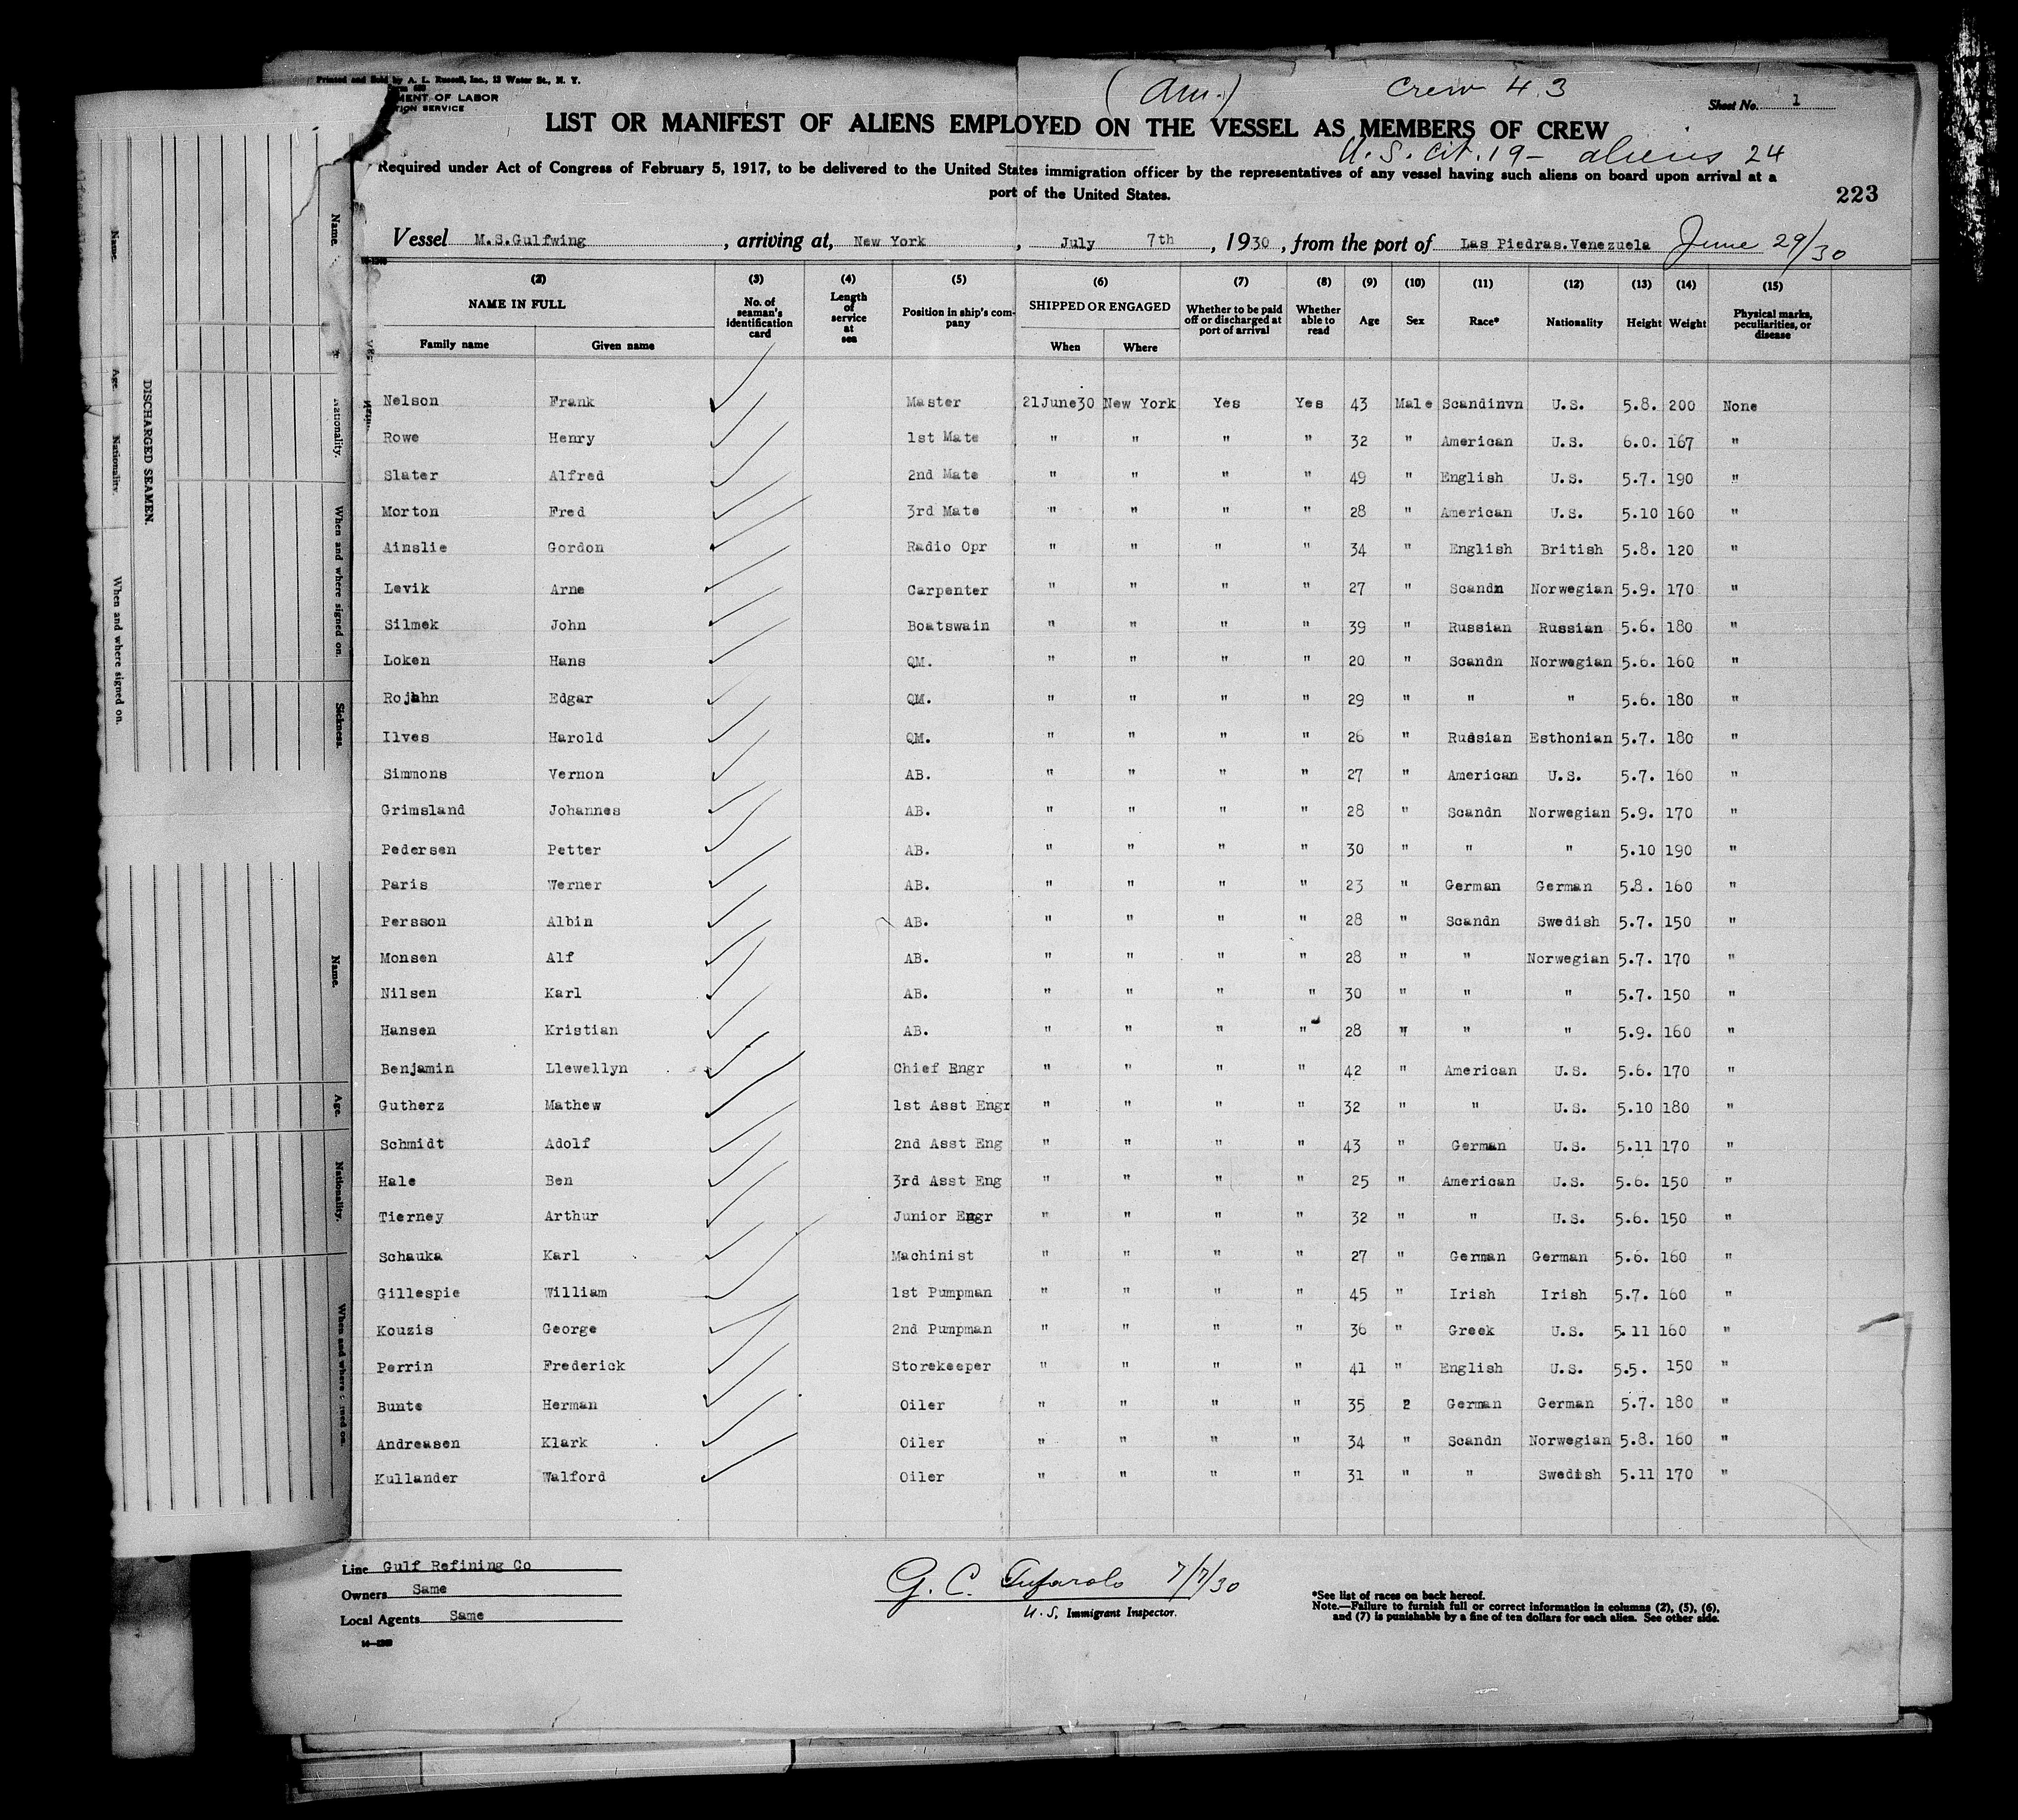 Printed and Sold by A. L. Russell, Inc., 13 Water St., N. Y.
MENT OF LABOR
TION SERVICE
(Am.)
Crew 43
Sheet No. 1
LIST OR MANIFEST OF ALIENS EMPLOYED ON THE VESSEL AS MEMBERS OF CREW
U.S. cit. 19 - aliens 24
Required under Act of Congress of February 5, 1917, to be delivered to the United States immigration officer by the representatives of any vessel having such aliens on board upon arrival at a
port of the United States.
223
Vessel M.S.Gulfwing, arriving at, New York, July 7th, 1930, from the port of Las Piedras.Venezuela June 29/30
(2) (3) (4) (5) (6) (7) (8) (9) (10) (11) (12) (13) (14) (15)
NAME IN FULL No. of seaman's identification card Length of service at sea Position in ship's company SHIPPED OR ENGAGED Whether to be paid off or discharged at port of arrival Whether able to read Age Sex Race* Nationality Height Weight Physical marks, peculiarities, or disease
Family name Given name When Where
Nelson Frank Master 21June30 New York Yes Yes 43 Male Scandinvn U.S. 5.8. 200 None
Rowe Henry 1st Mate " " " " 32 " American U.S. 6.0. 167 "
Slater Alfred 2nd Mate " " " " 49 " English U.S. 5.7. 190 "
Morton Fred 3rd Mate " " " " 28 " American U.S. 5.10 160 "
Ainslie Gordon Radio Opr " " " " 34 " English British 5.8. 120 "
Levik Arne Carpenter " " " " 27 " Scandn Norwegian 5.9. 170 "
Silmek John Boatswain " " " " 39 " Russian Russian 5.6. 180 "
Loken Hans QM. " " " " 20 " Scandn Norwegian 5.6. 160 "
Rojahn Edgar QM. " " " " 29 " " " 5.6. 180 "
Ilves Harold QM. " " " " 26 " Russian Esthonian 5.7. 180 "
Simmons Vernon AB. " " " " 27 " American U.S. 5.7. 160 "
Grimsland Johannes AB. " " " " 28 " Scandn Norwegian 5.9. 170 "
Pedersen Petter AB. " " " " 30 " " " 5.10 190 "
Paris Werner AB. " " " " 23 " German German 5.8. 160 "
Persson Albin AB. " " " " 28 " Scandn Swedish 5.7. 150 "
Monsen Alf AB. " " " " 28 " " Norwegian 5.7. 170 "
Nilsen Karl AB. " " " " 30 " " " 5.7. 150 "
Hansen Kristian AB. " " " " 28 " " " 5.9. 160 "
Benjamin Llewellyn Chief Engr " " " " 42 " American U.S. 5.6. 170 "
Gutherz Mathew 1st Asst Engr " " " " 32 " " U.S. 5.10 180 "
Schmidt Adolf 2nd Asst Eng " " " " 43 " German U.S. 5.11 170 "
Hale Ben 3rd Asst Eng " " " " 25 " American U.S. 5.6. 150 "
Tierney Arthur Junior Engr " " " " 32 " " U.S. 5.6. 150 "
Schauka Karl Machinist " " " " 27 " German German 5.6. 160 "
Gillespie William 1st Pumpman " " " " 45 " Irish Irish 5.7. 160 "
Kouzis George 2nd Pumpman " " " " 36 " Greek U.S. 5.11 160 "
Perrin Frederick Storekeeper " " " " 41 " English U.S. 5.5. 150 "
Bunte Herman Oiler " " " " 35 2 German German 5.7. 180 "
Andreasen Klark Oiler " " " " 34 " Scandn Norwegian 5.8. 160 "
Kullander Walford Oiler " " " " 31 " " Swedish 5.11 170 "
Line Gulf Refining Co
Owners Same
Local Agents Same
G. C. Tufarolo 7/7/30
U.S. Immigrant Inspector.
*See list of races on back hereof.
Note.—Failure to furnish full or correct information in columns (2), (5), (6),
and (7) is punishable by a fine of ten dollars for each alien. See other side.
DISCHARGED SEAMEN.
Name.
Age.
Nationality.
When and where signed on.
Name.
Nationality.
When and where signed on.
Sickness.
Name.
Age.
Nationality.
When and where signed on.